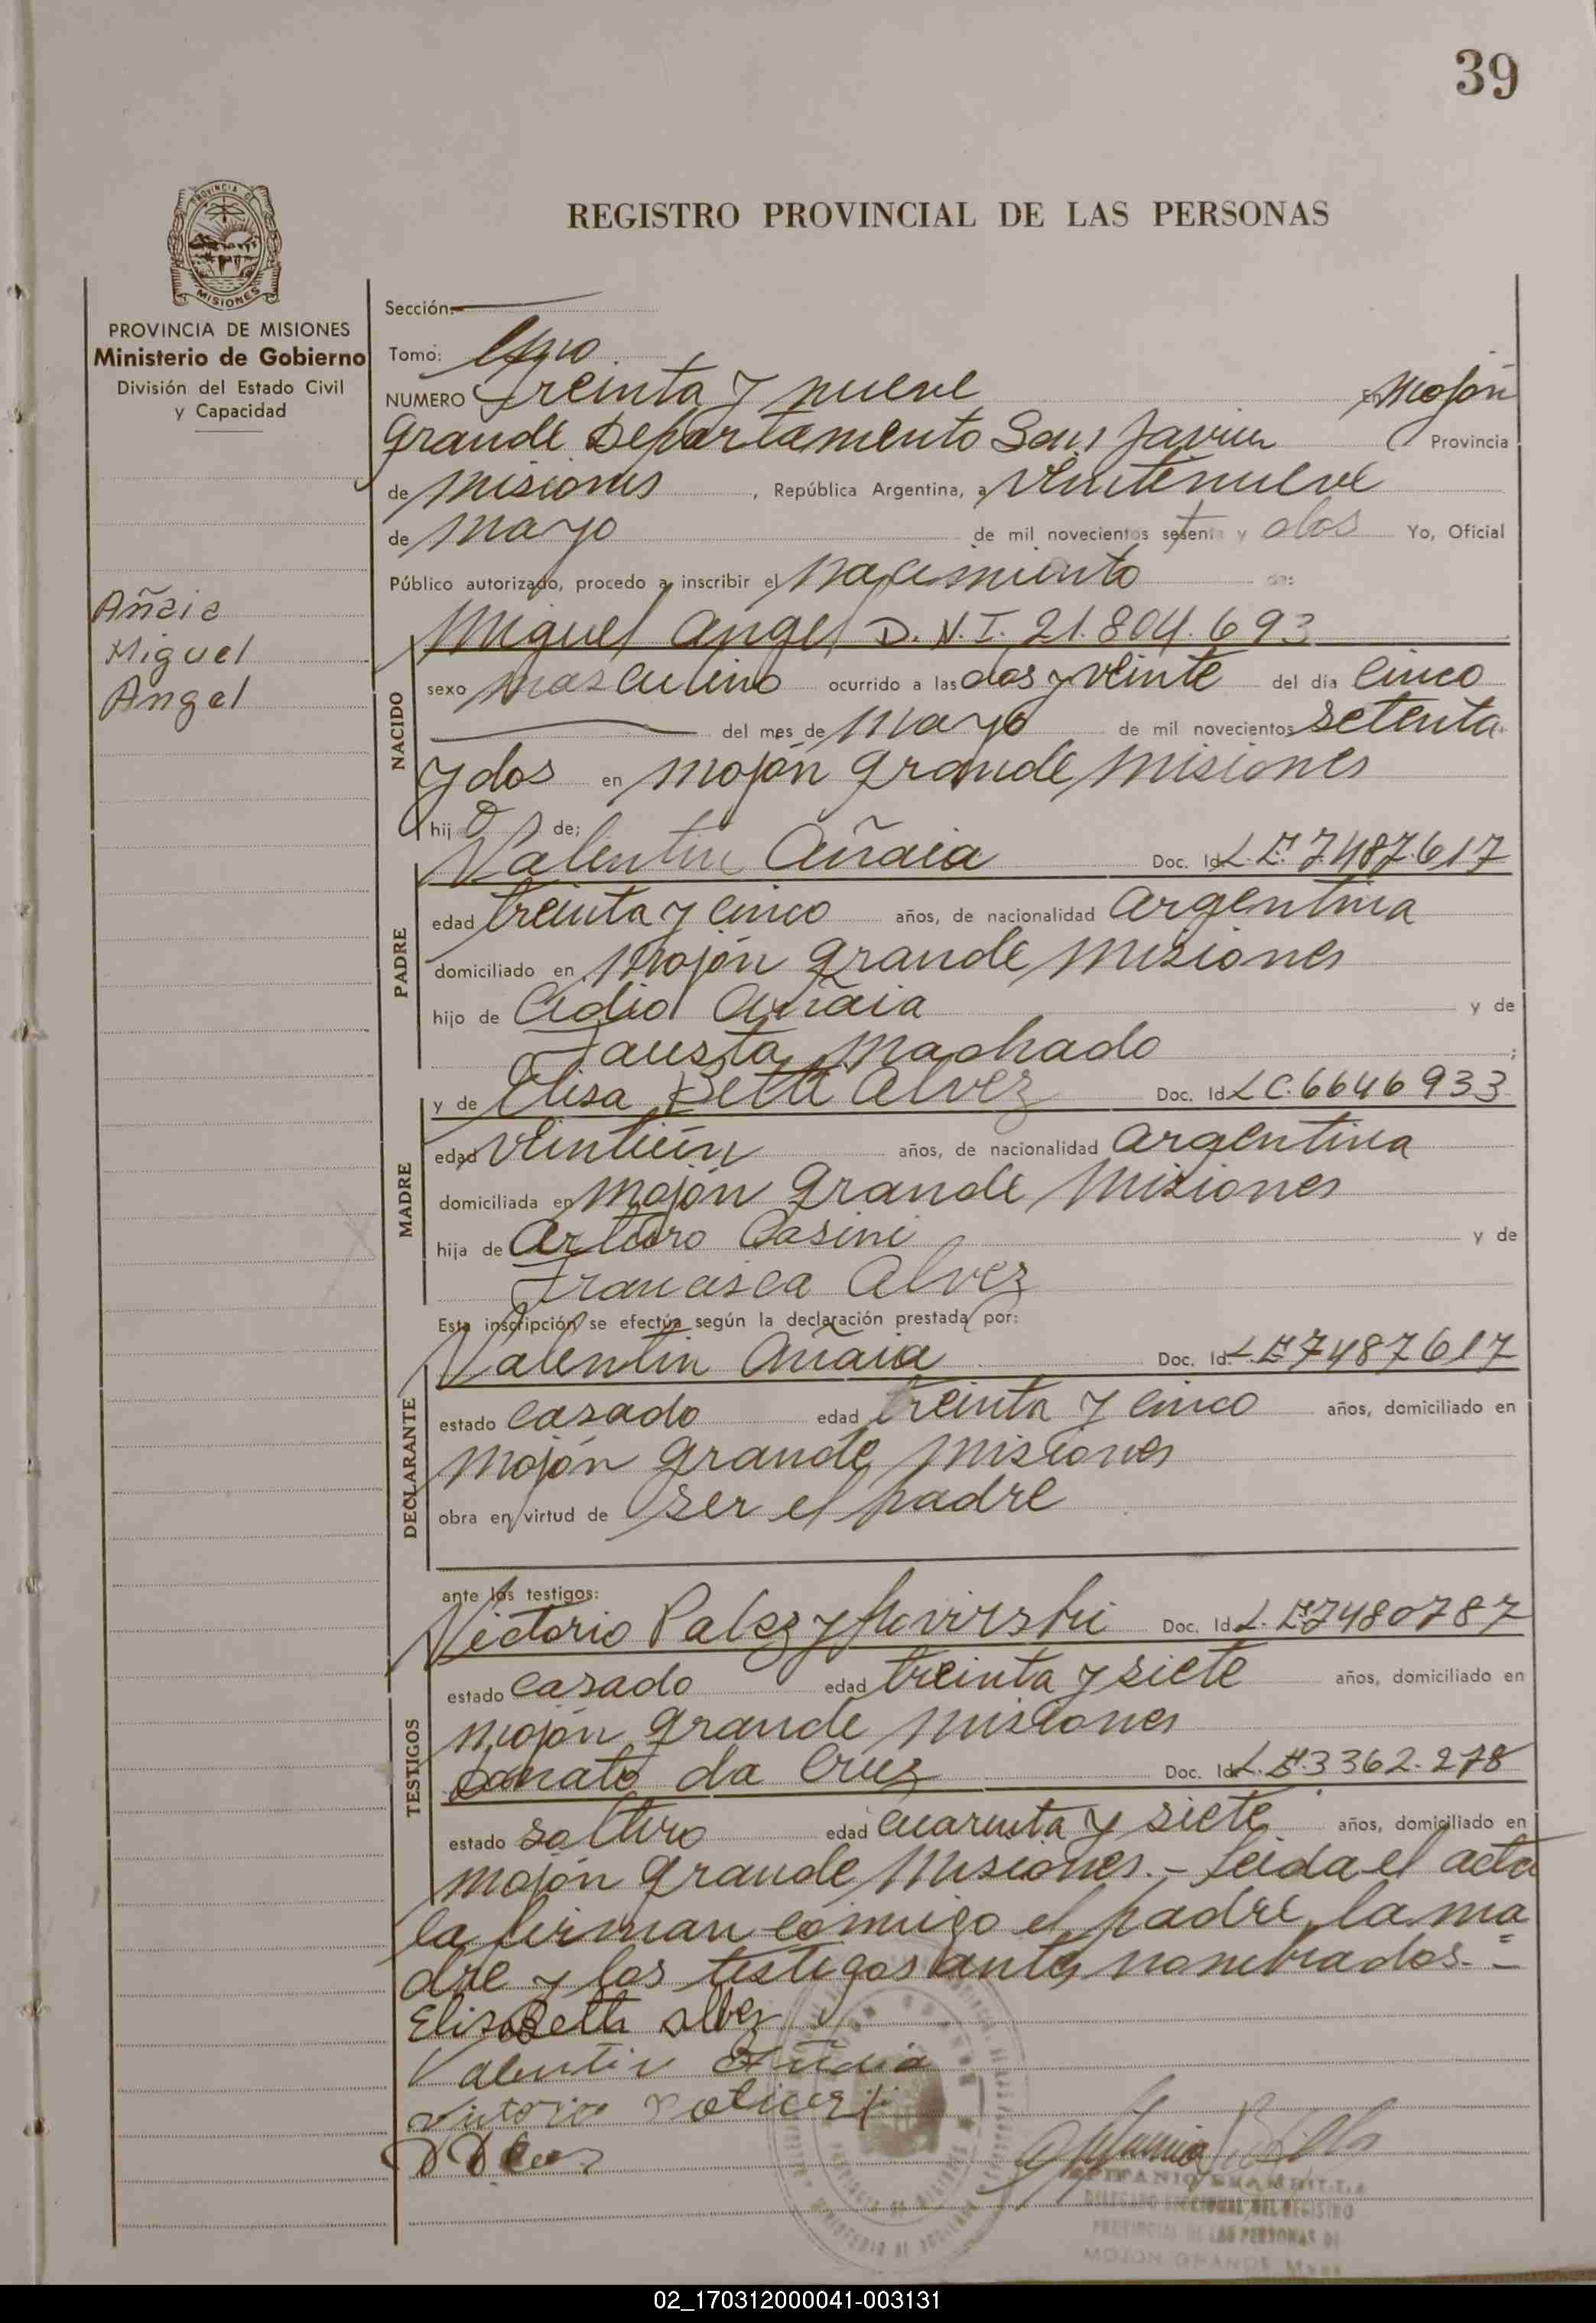 39
REGISTRO PROVINCIAL DE LAS PERSONAS
PROVINCIA DE MISIONES
Ministerio de Gobierno
División del Estado Civil
y Capacidad
Añaia
Miguel
Angel
Sección:
Tomo: Uno
NUMERO treinta y nueve En Mojón
Grande Departamento San Javier Provincia
de Misiones, República Argentina, a veintenueve
de mayo de mil novecientos setenta y dos Yo, Oficial
Público autorizado, procedo a inscribir el nacimiento de:
NACIDO
Miguel Angel D.N.I. 21.804.693
sexo masculino ocurrido a las dos y veinte del día cinco
del mes de mayo de mil novecientos setenta
y dos en Mojón Grande Misiones
hijo de;
PADRE
Valentin Añaia Doc. Id L.E. 7.487.617
edad treinta y cinco años, de nacionalidad Argentina
domiciliado en Mojón Grande Misiones
hijo de Cidio Añaia y de
Fausta Machado;
MADRE
y de Elisa Bett Alvez Doc. Id L.C. 6646933
edad veintiún años, de nacionalidad Argentina
domiciliada en Mojón Grande Misiones
hija de Arturo Casini y de
Francisca Alvez
Esta inscripción se efectúa según la declaración prestada por:
DECLARANTE
Valentin Añaia Doc. Id. L.E 7487617
estado casado edad treinta y cinco años, domiciliado en
Mojón Grande Misiones
obra en virtud de ser el padre
ante los testigos:
TESTIGOS
Victorio Doc. Id L.E 7480787
estado casado edad treinta y siete años, domiciliado en
Mojón Grande Misiones
Donato da Cruz Doc. Id L.E.3362.278
estado soltero edad cuarenta y siete años, domiciliado en
Mojón Grande Misiones.- Leida el acta
la firman conmigo el padre, la ma
dre y los testigos antes nombrados.-
Elisa Betta Alvez
Valentin Añaia
DELEGADO SECCIONAL DEL REGISTRO
PROVINCIAL DE LAS PERSONAS DE
MOJON GRANDE Mnes
02_170312000041-003131